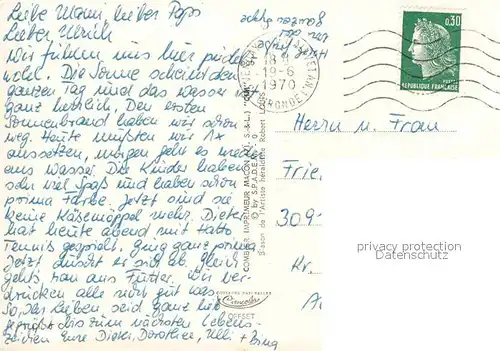 Liebe Mami, lieber Paps
Lieber Ulrich
Wir fühlen uns hier pudel
wohl. Die Sonne scheint den
ganzen Tag und das Wasser ist
ganz herrlich. Den ersten
Sonnenbrand haben wir schon
weg. Heute mußten wir 1x
aussetzen, morgen geht es wieder
ins Wasser. Die Kinder haben
sehr viel Spaß und haben schon
prima Farbe. Jetzt sind sie
keine Käsemöppel mehr. Dieter
hat heute abend mit
Tennis gespielt. Ging ganz prima
Jetzt duscht er sich ab. Gleich
geht's ran ans Futter. Wir ver-
drücken alle nicht gut was.
So, Ihr Lieben seid ganz lieb
gegrüßt bis zum nächsten Lebens-
zeichen Eure Dieter, Dorothee, Ulli +
18 H
19-6
1970
GIRONDE
0,30
POSTES
REPUBLIQUE FRANÇAISE
COMBIER IMPRIMEUR MACON (S.-&-L.)
© by S.P.A.D.E.M.
Blason de l'Artiste héraldiste Robert LOUIS
OFFSET
Herrn u. Frau
Frie
309
Kr.
privacy protection
Datenschutz